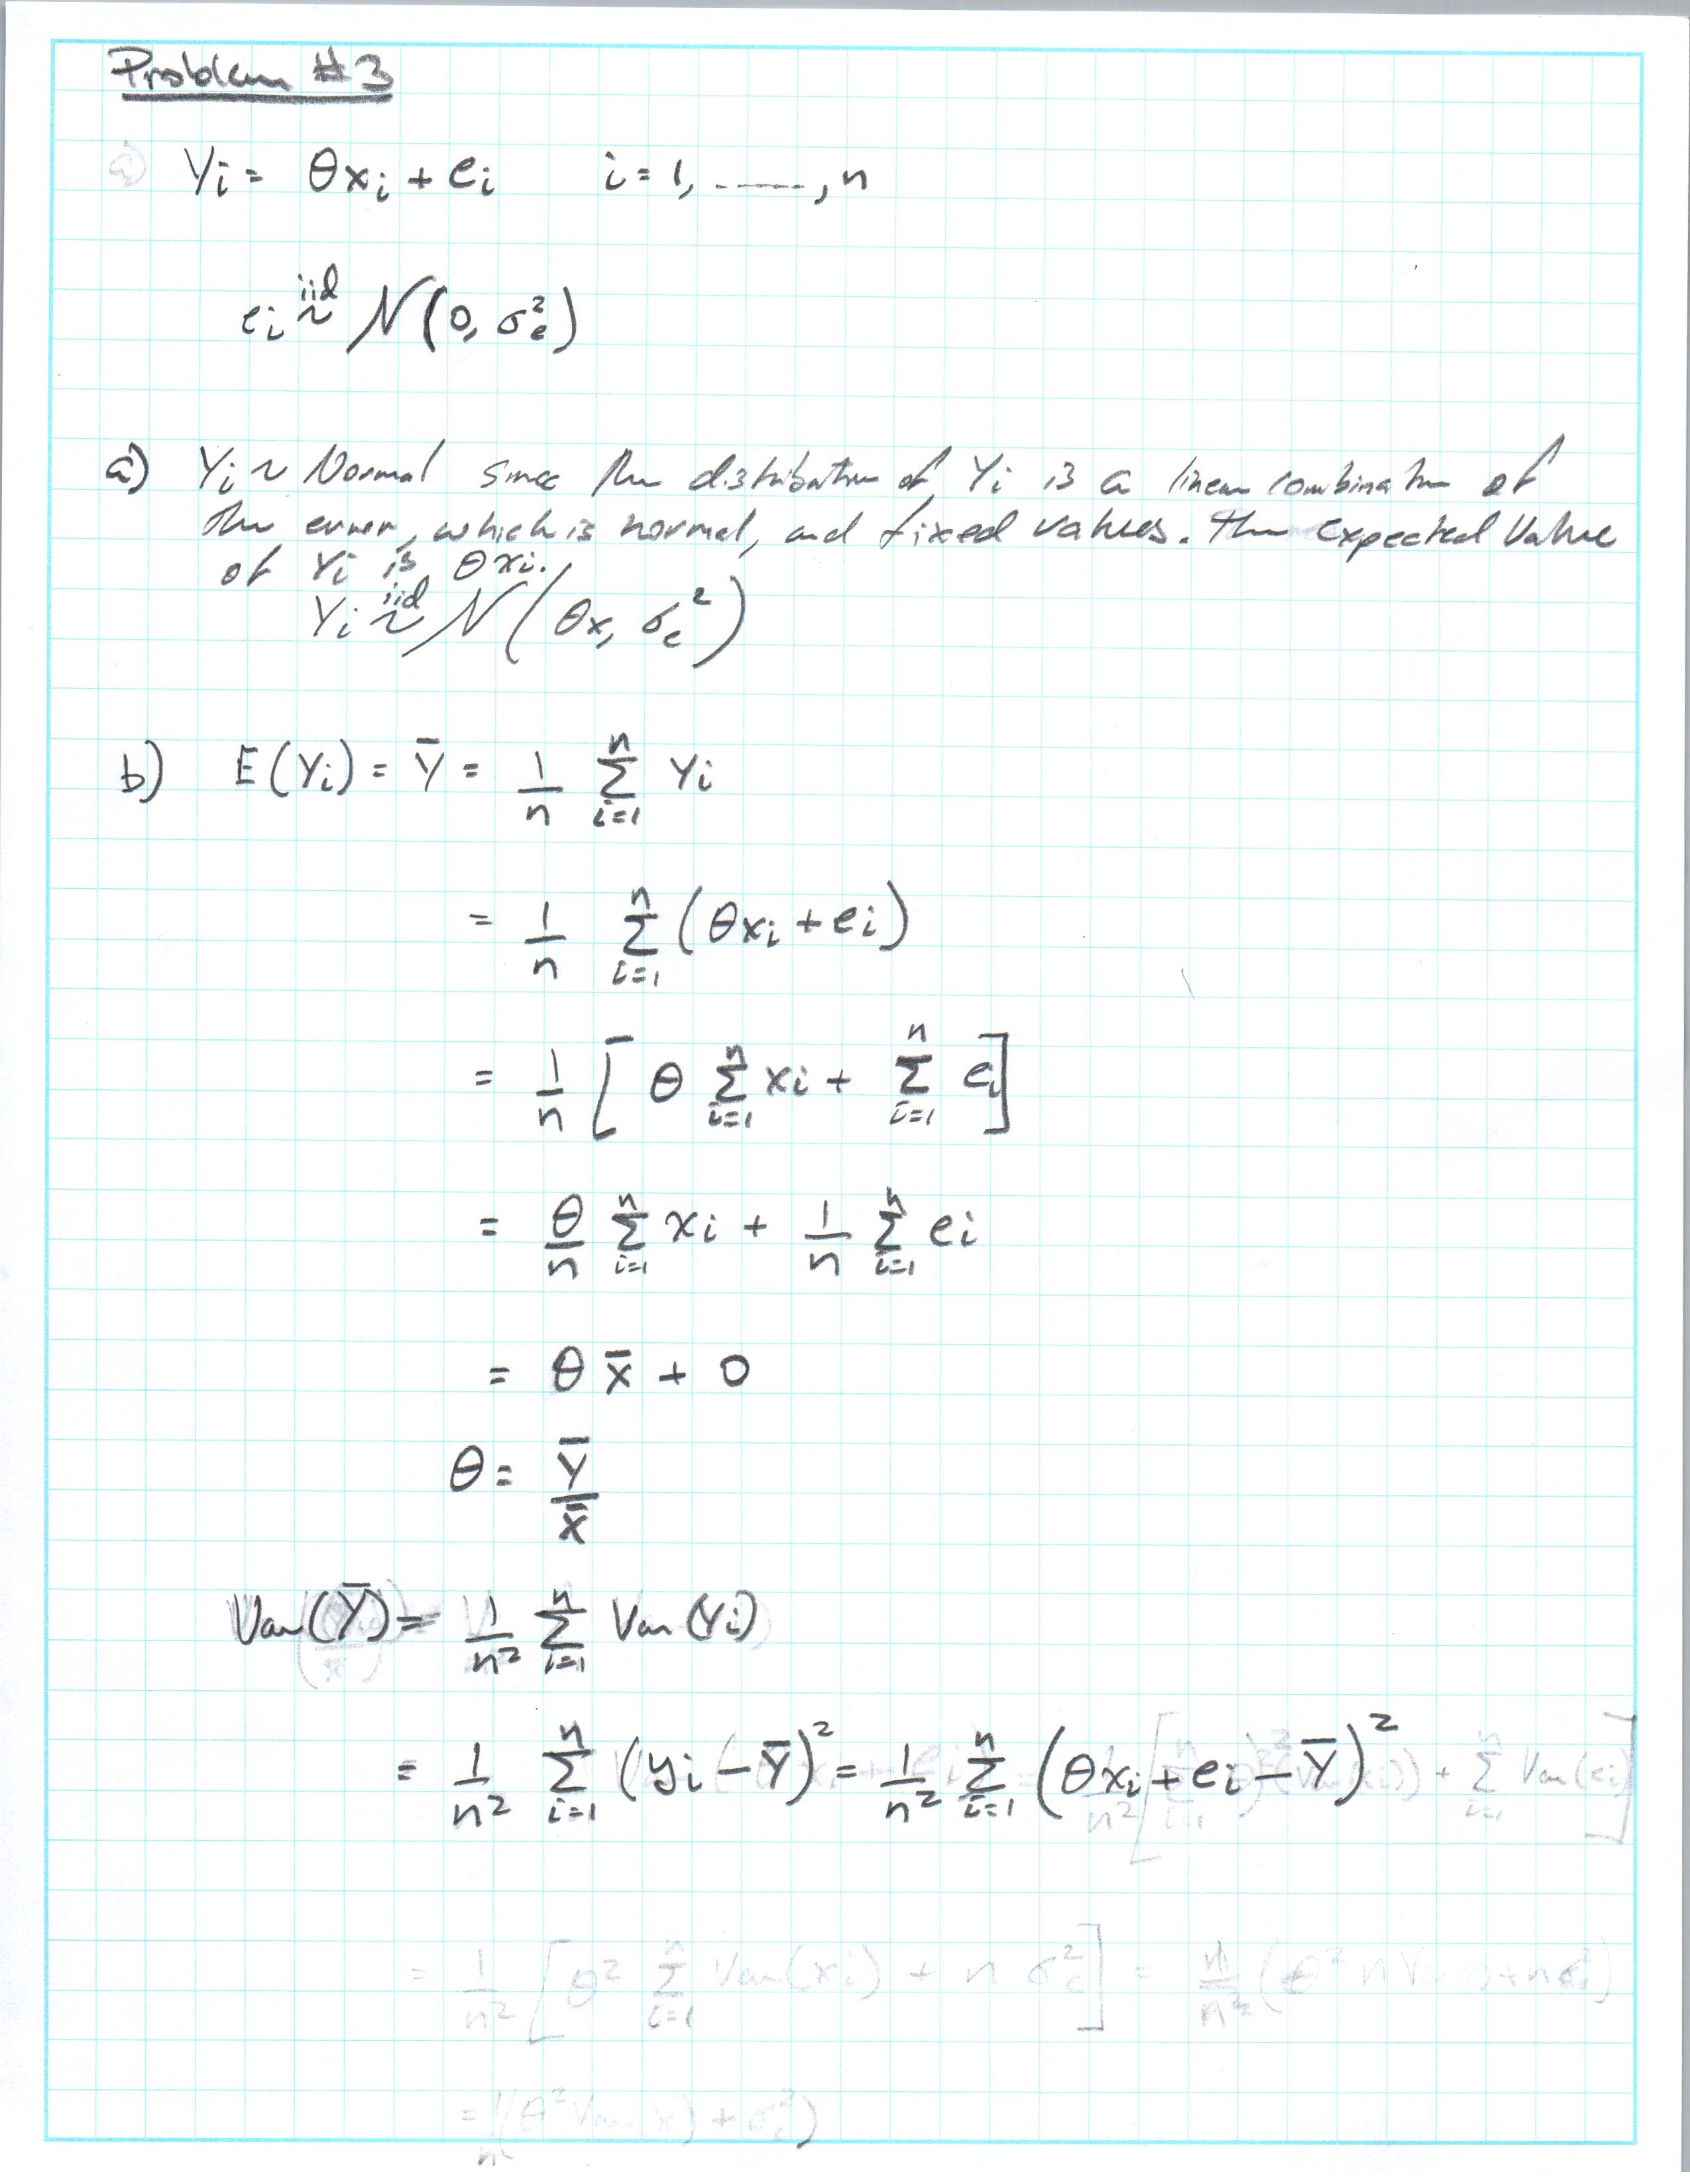 Problem #3
a) Yi = θxi + ei i = 1, ......, n
ei iid ~ N(0, σe²)
a) Yi ~ Normal since the distribution of Yi is a linear combination of
the error, which is normal, and fixed values. The expected value
of Yi is θxi.
Yi iid ~ N(θx, σe²)
b) E(Yi) = Ȳ = 1/n Σ_{i=1}^{n} Yi
= 1/n Σ_{i=1}^{n} (θxi + ei)
= 1/n [θ Σ_{i=1}^{n} xi + Σ_{i=1}^{n} ei]
= θ/n Σ_{i=1}^{n} xi + 1/n Σ_{i=1}^{n} ei
= θ x̄ + 0
θ = Ȳ/x̄
Var(Ȳ) = 1/n² Σ_{i=1}^{n} Var(Yi)
= 1/n² Σ_{i=1}^{n} (yi − Ȳ)² = 1/n² Σ_{i=1}^{n} (θxi + ei − Ȳ)² + Σ_{i=1}^{n} Var(ei)]
= 1/n² [θ² Σ_{i=1}^{n} Var(xi) + n σe²] =
= 1/n (θ² Var(x) + σe²)